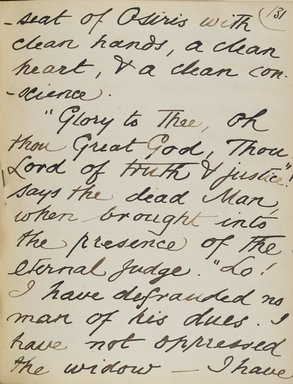 131
-seat of Osiris with
clean hands, a clean
heart, & a clean con-
-science.
"Glory to Thee, oh
thou Great God, Thou
Lord of truth & justice"
says the dead Man,
when brought into
the presence of the
eternal Judge. "Lo!
I have defrauded no
man of his dues. I
have not oppressed
the widow — I have